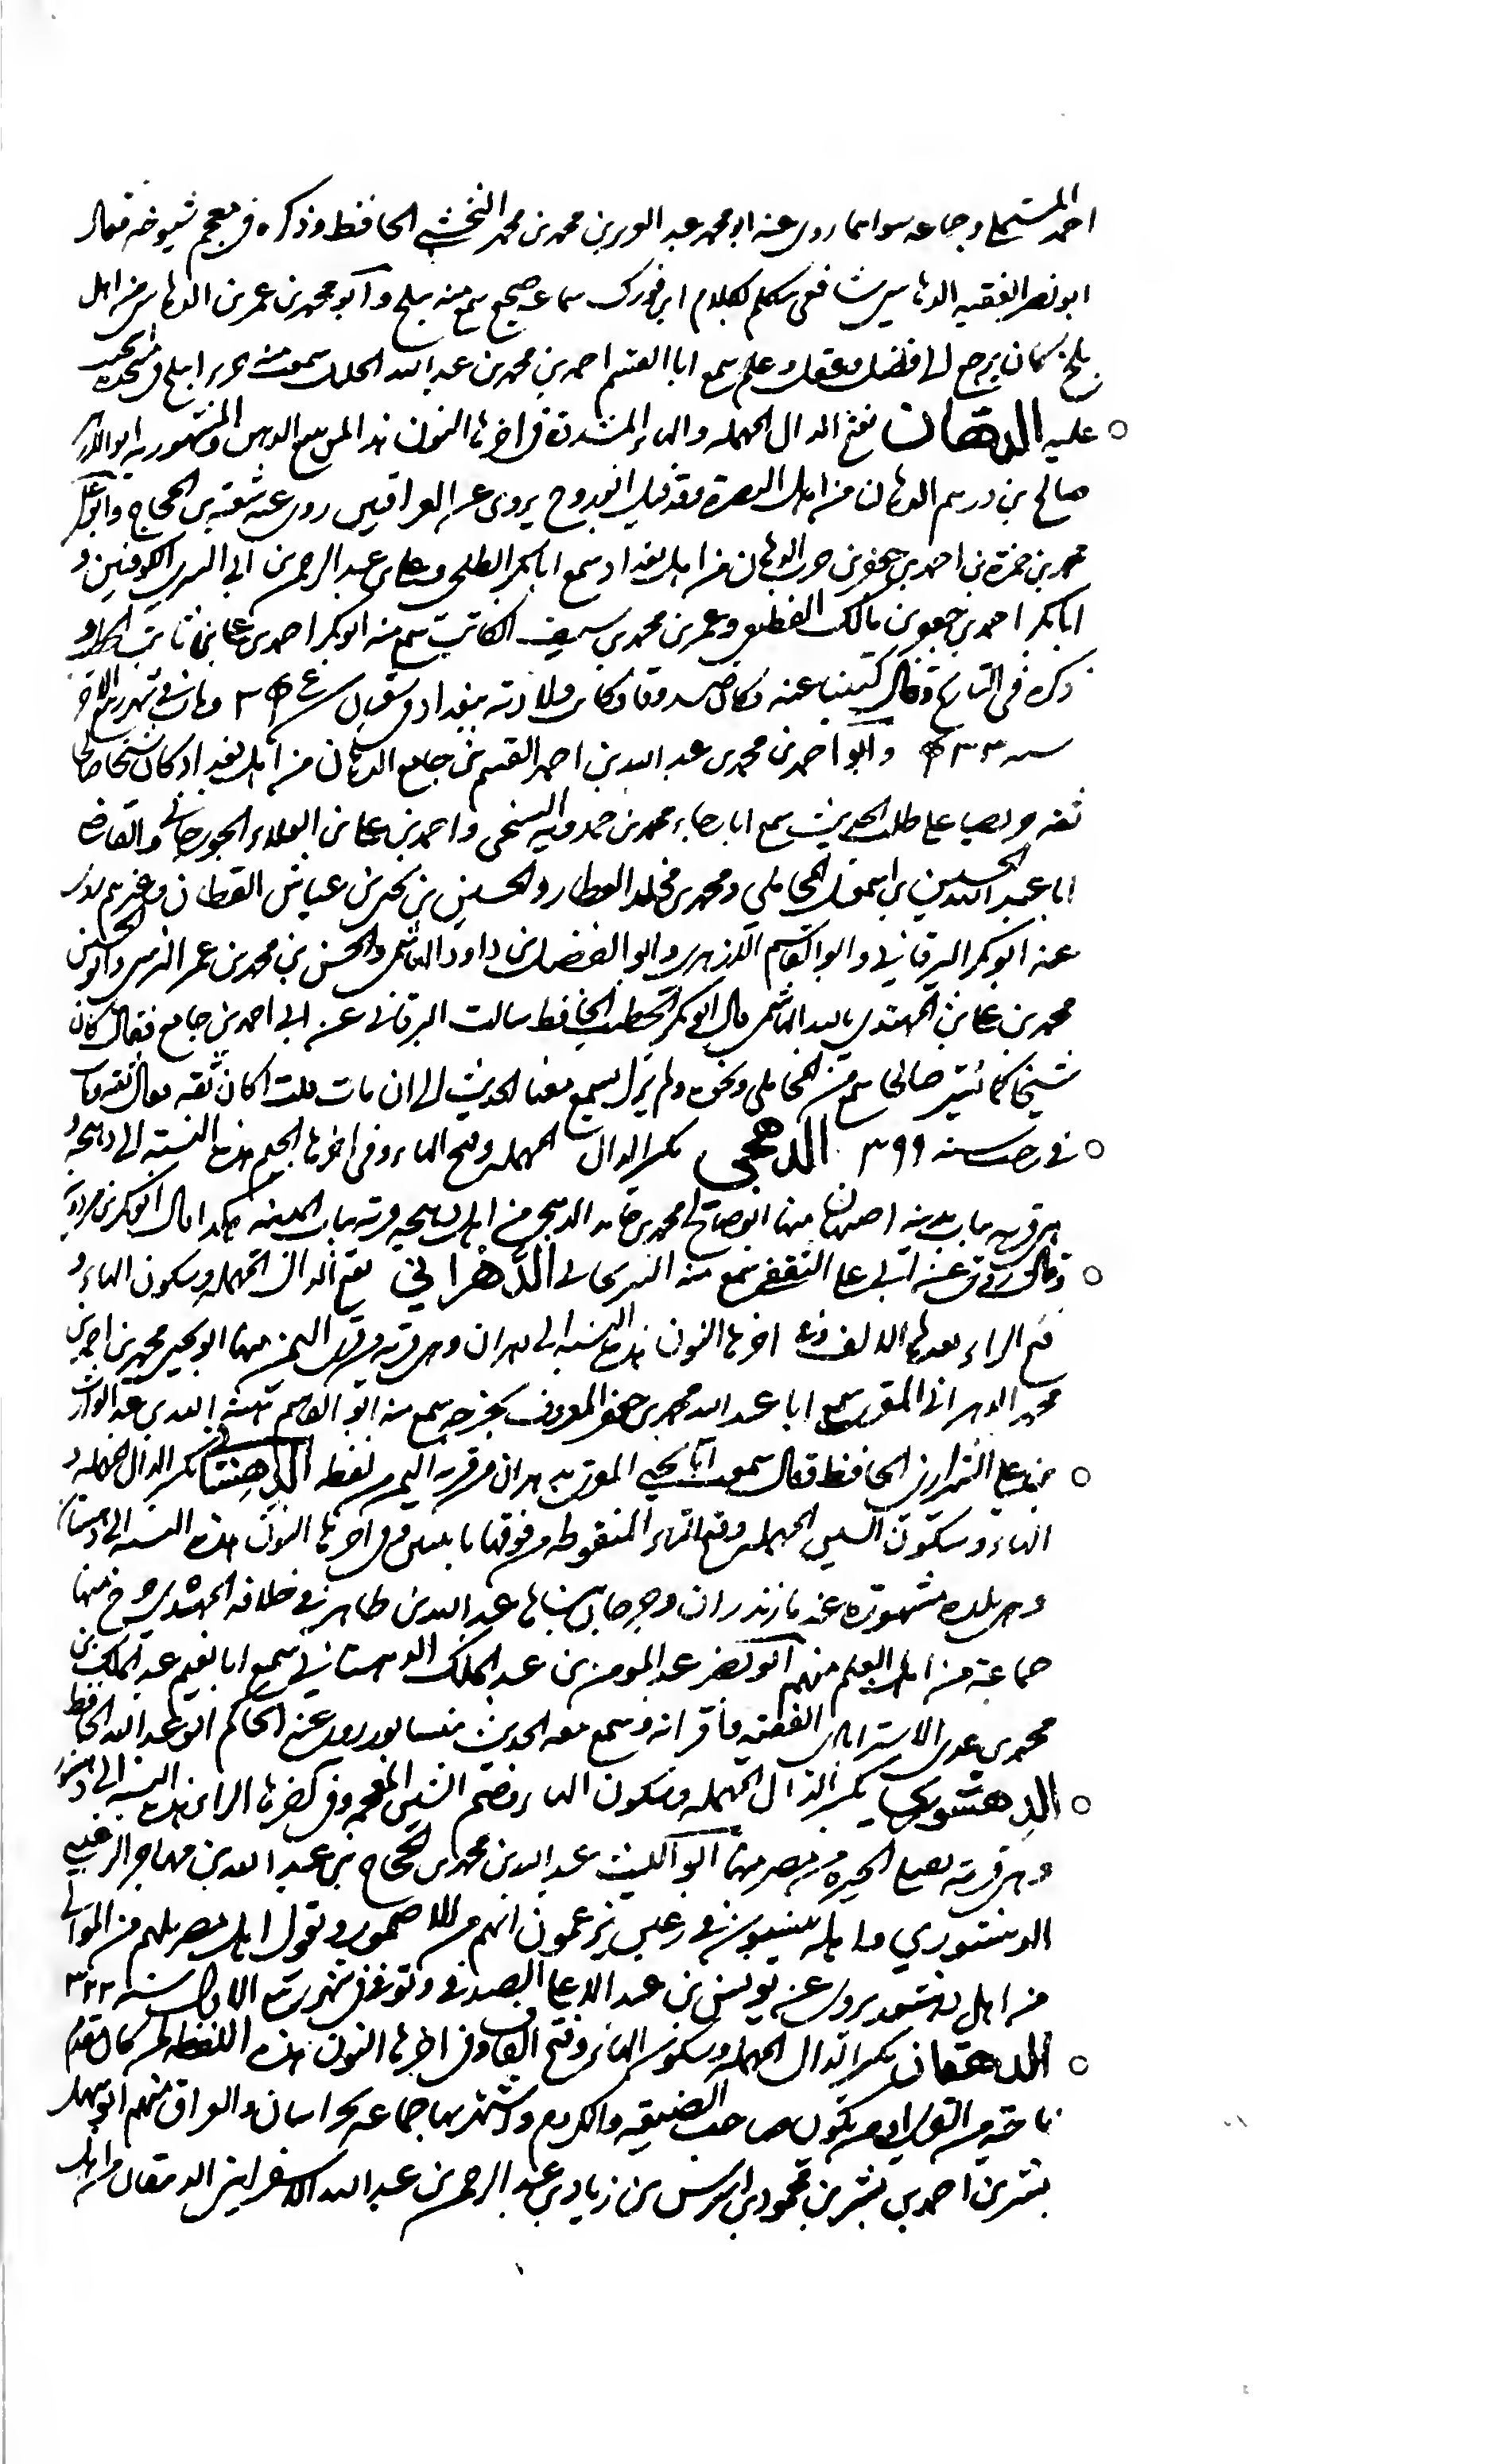 احمد المستملي وجماعة سواهما روى عنه ابو محمد عبد العزيز بن محمد بن محمد النخشبي الحافظ وذكره في معجم شيوخه فقال
ابو نصر الفقيه الدهاسي شافعي يتكلم بكلام ابن فورك سماعه صحيح سمع منه ببلخ وابو محمد بن عمر بن الدهاس من اهل
بلخ كان يرجع الى فضل وعقل وعلم سمع ابا القسم احمد بن محمد بن عبد الله الخليلي سمعت منه ببلخ في
عليه الدهان بفتح الدال المهملة والهاء المشددة في اخرها النون هذا لمن يبيع الدهن والمشهور به ابو الازهر
صالح بن درهم الدهان من اهل البصرة وقد قيل ابو روح يروى عن العراقيين روى عنه شعبة بن الحجاج وابو علي
محمد بن حمزة بن احمد بن جعفر بن حرب الدهان من اهل بغداد سمع ابا بكر الطلحي وعلي بن عبد الرحمن بن ابي السري الكوفيين و
ابا بكر احمد بن جعفر بن مالك القطيعي وعمر بن محمد بن سيف الكاتب سمع منه ابو بكر احمد بن علي بن ثابت الخطيب و
ذكره في التاريخ وقال كتبنا عنه وكان صدوقا وكانت ولادته ببغداد في شوال ومات في شهر ربيع الاخر
سنة وابو احمد بن محمد بن عبد الله بن احمد القسم بن جامع الدهان من اهل بغداد كان شيخا صالحا
ثقة حريصا على طلب الحديث سمع ابا رجاء محمد بن حمدويه السنجي واحمد بن علي بن العلاء الجوزجاني والقاضي
ابا عبد الله الحسين بن اسمعيل المحاملي ومحمد بن مخلد العطار والحسين بن يحيى بن عياش القطان وغيرهم روى
عنه ابو بكر البرقاني وابو القاسم الازهري وابو الفضل بن داود الهاشمي والحسن بن محمد بن عمر النرسي وابو الحسين
محمد بن علي بن المهتدي بالله الهاشمي قال ابو بكر الخطيب الحافظ سالت البرقاني عن ابي احمد بن جامع فقال كان
شيخا كما تشير صالحا سمع من المحاملي ونحوه ولم يزل يسمع معنا الحديث الى ان مات قلت اكان ثقة فقال ثقة مات
في رجب سنة ٣٩٩ الدهجي بكسر الدال المهملة وفتح الهاء وفي اخرها الجيم هذه النسبة الى دهجية و
هي قرية بباب مدينة اصبهان منها ابو صالح محمد بن حامد الدهجي من اهل دهجية قرية بباب المدينة هكذا قال ابو بكر بن مردويه
وقال روى عن ابي علي الثقفي سمع منه السريجاني الدهراني بفتح الدال المهملة وسكون الهاء و
فتح الراء بعدها الالف وفي اخرها النون هذه النسبة الى دهران وهي قرية من قرى اليمن منها ابو يحيى محمد بن احمد بن
محمد الدهراني المقرئ سمع ابا عبد الله محمد بن جعفر المعروف سمع منه ابو القاسم هبة الله بن عبد الوارث
بن علي الشيرازي الحافظ فقال سمعت ابا يحيى المقرئ بدهران من قرية اليمن لفظه الدهستاني بكسر الدال المهملة و
الهاء وسكون السين المهملة وفتح التاء المنقوطة من فوقها باثنتين وفي اخرها النون هذه النسبة الى دهستان
وهي بلدة مشهورة عند مازندران وجرجان بناها عبد الله بن طاهر في خلافة المهدي خرج منها
جماعة من اهل العلم منهم ابو نصر عبد المومن بن عبد الملك الدهستاني سمع ابا نعيم عبد الملك بن
محمد بن عدي الاستراباذي الفقيه واقرانه وسمع معه الحديث بنيسابور روى عنه الحاكم ابو عبد الله الحافظ
الدهشوري بكسر الدال المهملة وسكون الهاء وضم الشين المعجمة وفي اخرها الراء هذه النسبة الى دهشور
وهي قرية بصعيد الجيزة من مصر منها ابو الليث عبد الله بن محمد بن الحجاج بن عبد الله بن مهاجر الرعيني
الدهشوري واهله ينسبون في رعين يزعمون انهم من الاصمور ويقول اهل مصر بل هم من الموالي
من اهل دهشور يروى عن يونس بن عبد الاعلى الصدفي وتوفي في شهر ربيع الاول سنة ٣٢٢
الدهقان بكسر الدال المهملة وسكون الهاء وفتح القاف وفي اخرها النون هذه اللفظة لمن كان مقدم
ناحية من القرى او من يكون صاحب الضيعة والكروم واشتهر بها جماعة بخراسان والعراق منهم ابو سهل
بشر بن احمد بن بشر بن محمود بن اشرس بن زياد بن عبد الرحمن بن عبد الله الاسفرايني الدهقان من اهل